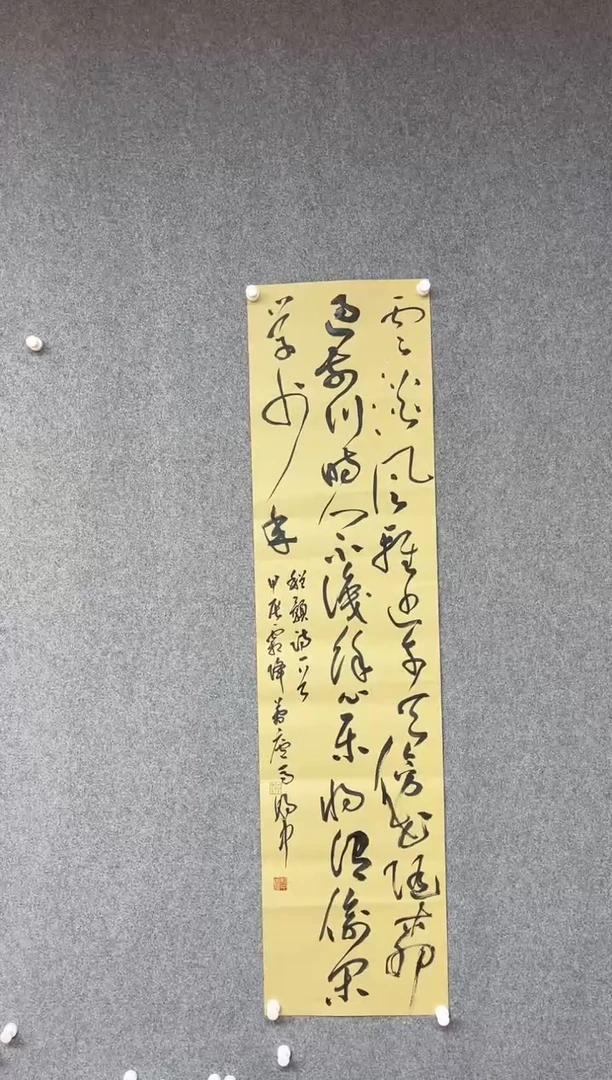 雲淡風輕近午天傍花隨柳
過前川時人不識餘心樂將謂偷閑
學少年
程顥詩一首
甲辰霜降